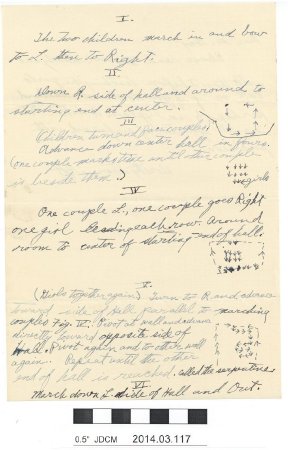 I.
The Two children march in and bow
to L. then to Right.
II
Down R. side of hall and around to
starting end at center.
III
(Children turn and face couples)
Advance down center hall in fours.
(one couple marks time until other couple
is beside them.)
girls
IV
One couple L., one couple goes Right
one girl leading each row. Around
room to center of starting end of hall.
V.
(Girls together again) Turn to R. and advance
toward side of hall parallel to marching
couples Fig. IV. Pivot at wall and advance
directly toward opposite side of
hall. Pivot again, and to other wall
again. Repeat until the other
end of hall is reached. called the serpentine
VI
March down L. side of Hall and Out.
0.5" JDCM 2014.03.117